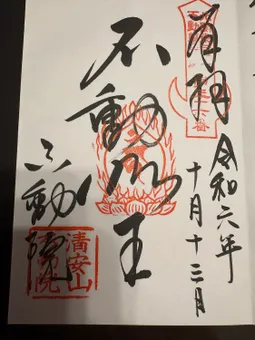 奉拝
令和六年
十月十三日
不動明王
不動院
清安山